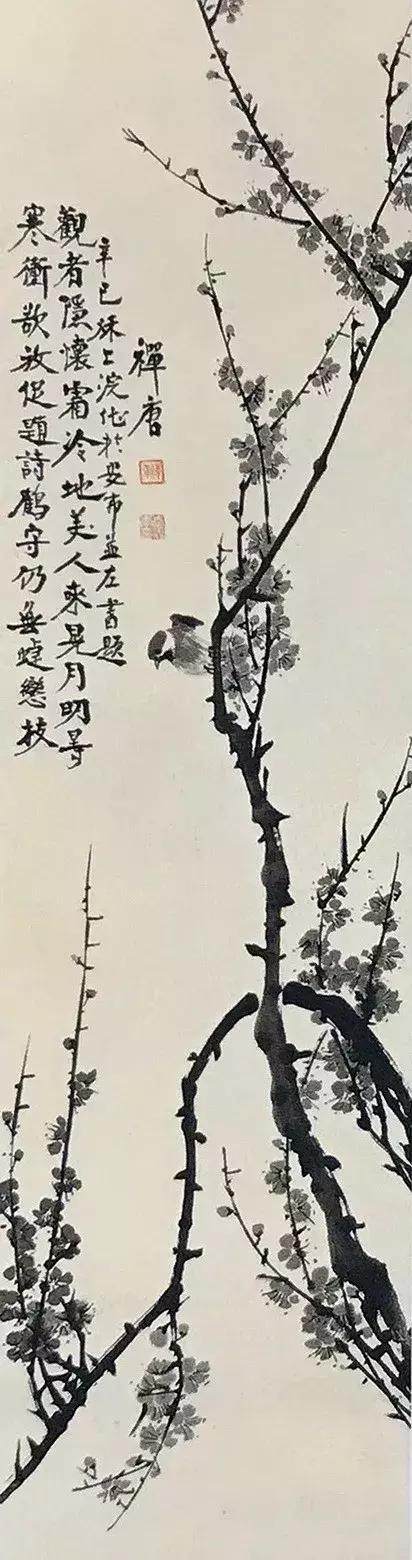 寒衝欲放促題詩鶴守仍無蝶戀枝
觀者隱懷霜冷地美人來晃月明旹
辛巳秌上浣作於安布並左書題
禪唐